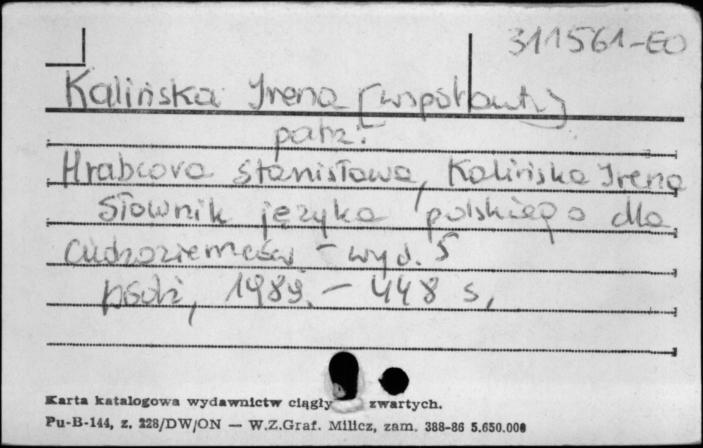 311561-EO
Kalińska Irena [współaut.]
patrz:
Hrabcova Stanisława, Kalińska Irena
Słownik języka polskiego dla
cudzoziemców - wyd. 5
Łódź, 1989. - 448 s.
Karta katalogowa wydawnictw ciągły zwartych.
Pu-B-144, z. 228/DW/ON — W.Z.Graf. Milicz, zam. 388-86 5.650.000